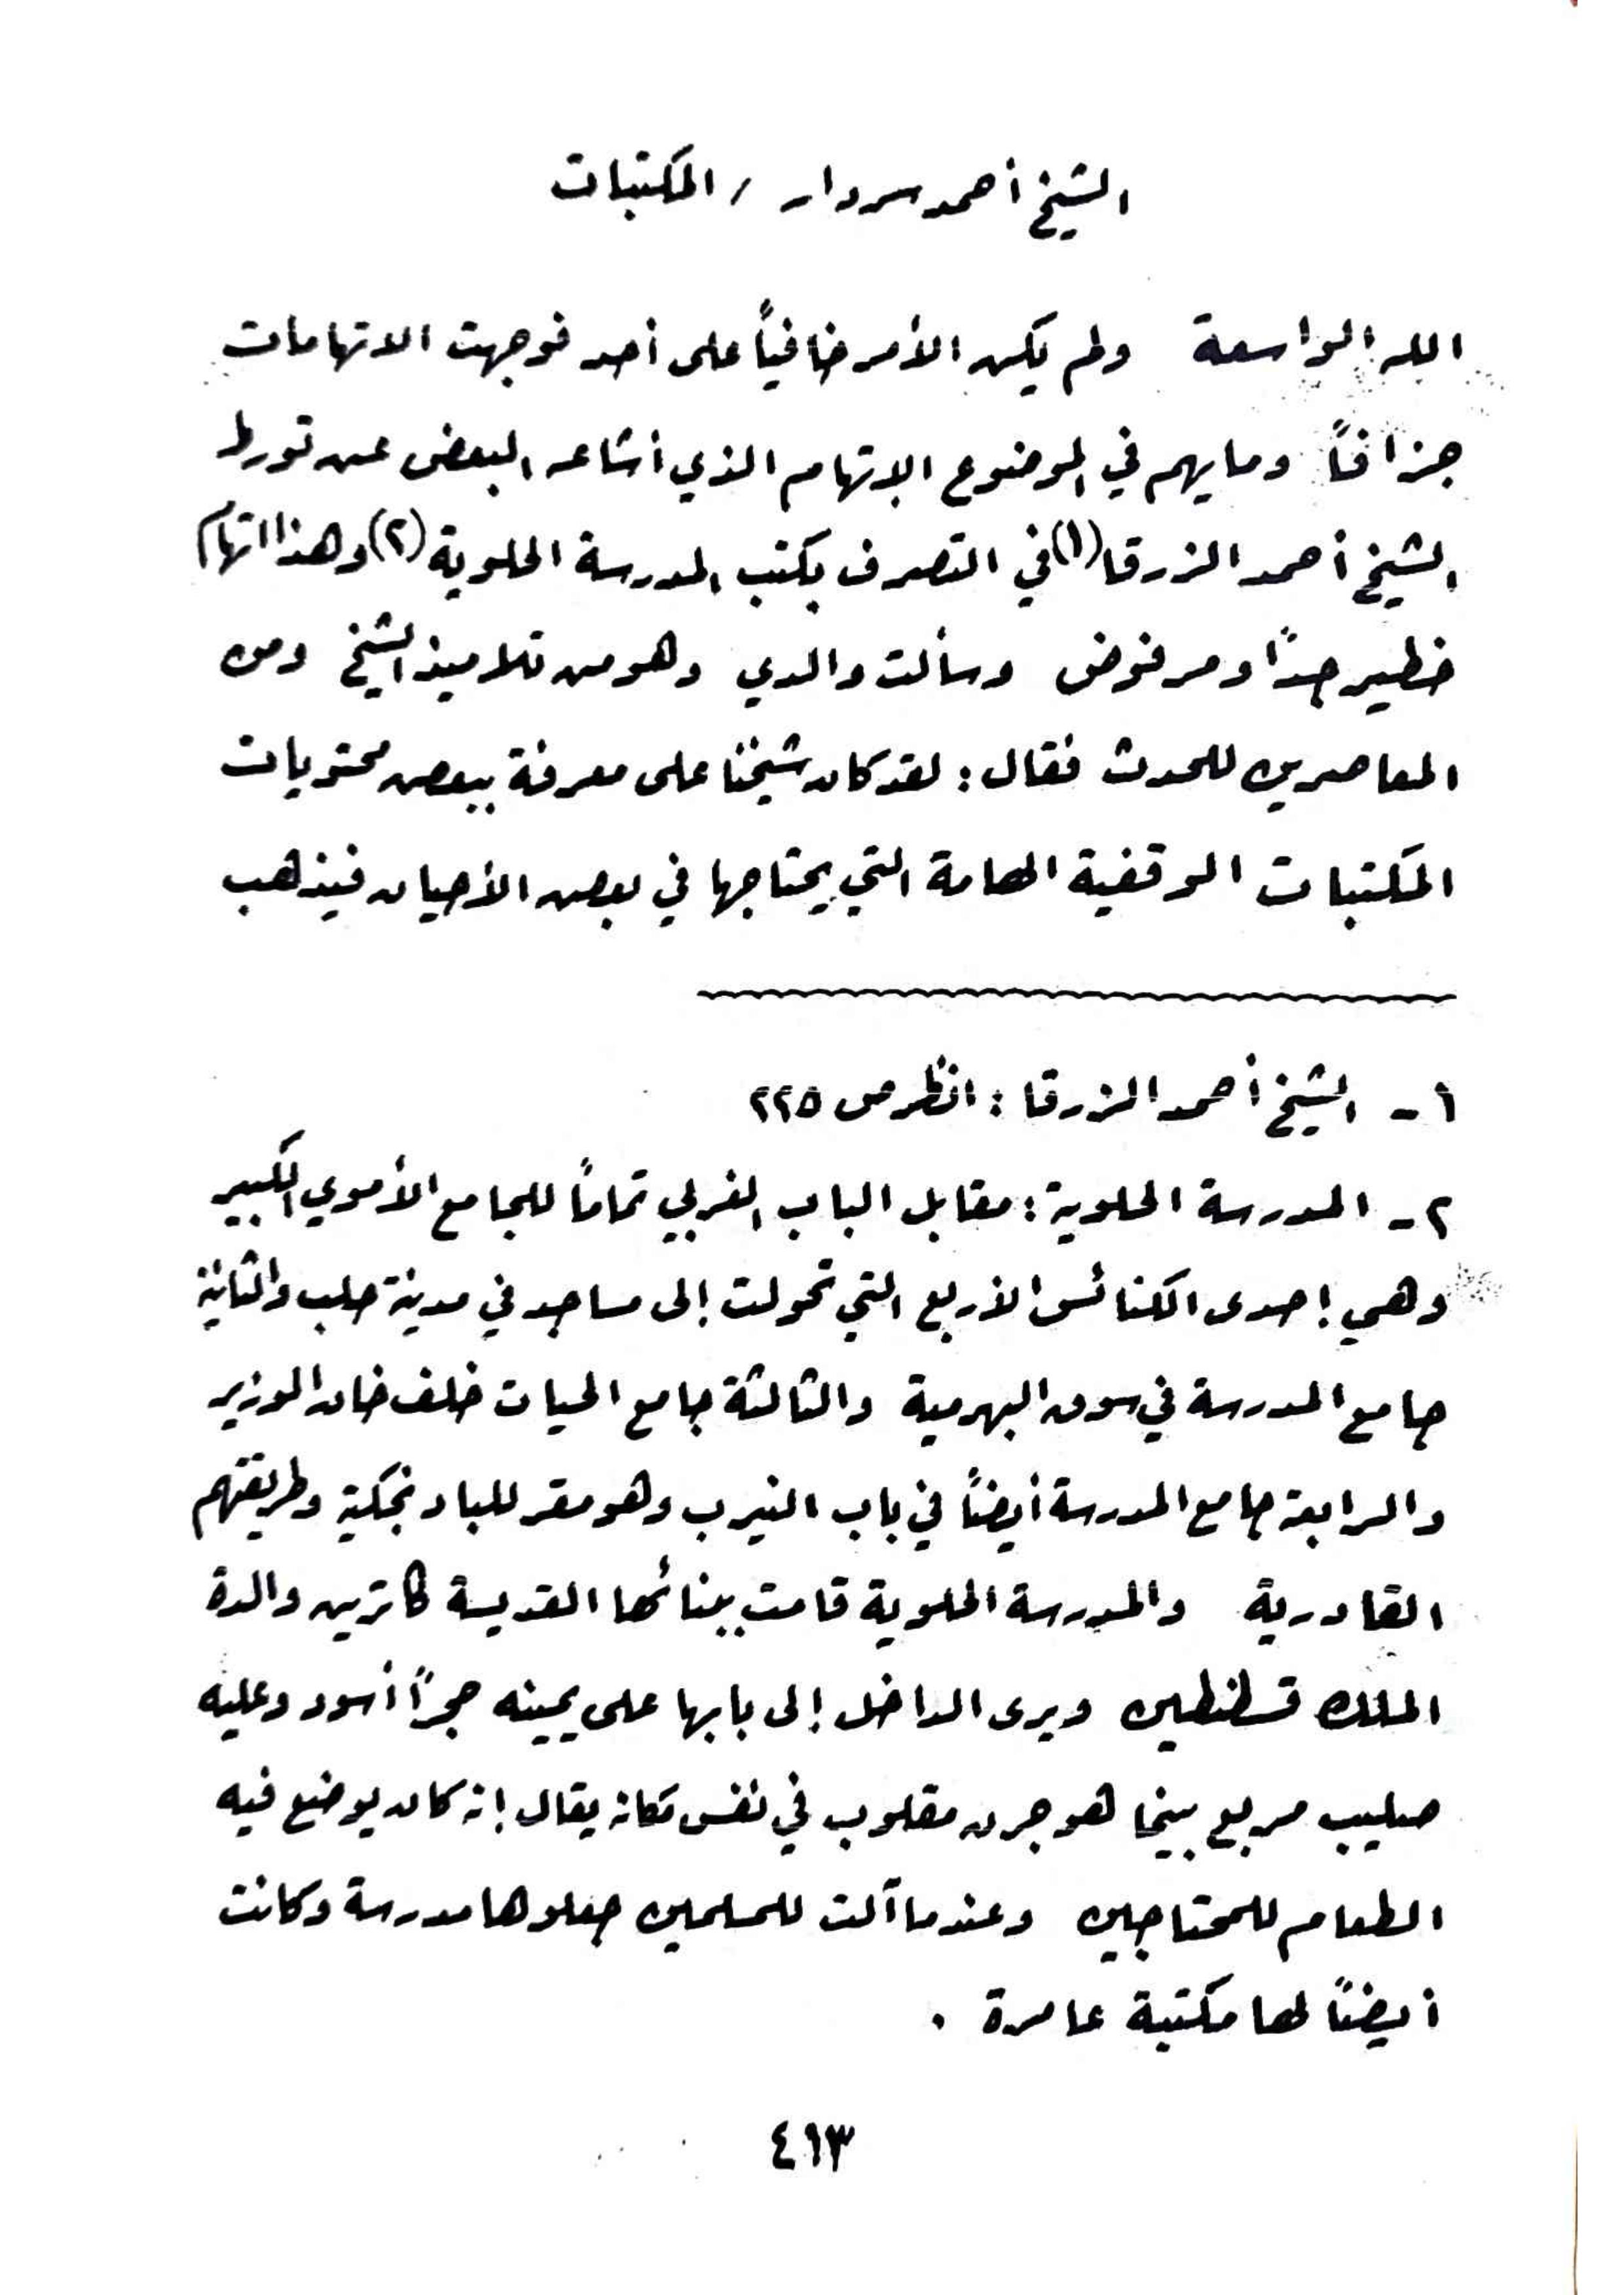 الشيخ أحمد سردار / المكتبات
الله الواسعة ولم يكن الأمر خافياً على أحد فوجهت الاتهامات
جزافاً وما يهم في الموضوع الإتهام الذي أشاعه البعض عن تورط
الشيخ أحمد الزرقا (١) في التصرف بكتب المدرسة الحلوية (٢) وهذا اتهام
خطير جداً ومرفوض وسألت والدي وهو من تلاميذ الشيخ ومن
المعاصرين للحدث فقال : لقد كان شيخنا على معرفة ببعض محتويات
المكتبات الوقفية الهامة التي يحتاجها في بعض الأحيان فيذهب
١ - الشيخ أحمد الزرقا : انظر ص ٢٢٥
٢ - المدرسة الحلوية : مقابل الباب الغربي تماماً للجامع الأموي الكبير
وهي إحدى الكنائس الأربع التي تحولت إلى مساجد في مدينة حلب والثانية
جامع المدرسة في سوق البهرمية والثالثة جامع الحيات خلف خان الوزير
والرابعة جامع المدرسة أيضاً في باب النيرب وهو مقر للبادنجكية وطريقتهم
القادرية والمدرسة الحلوية قامت ببنائها القديسة كاترين والدة
الملك قسطنطين ويرى الداخل إلى بابها على يمينه حجراً أسود وعليه
صليب مربع بينما هو جرن مقلوب في نفس مكانه يقال إنه كان يوضع فيه
الطعام للمحتاجين وعندما آلت للمسلمين جعلوها مدرسة وكانت
أيضاً لها مكتبة عامرة .
٤١٣